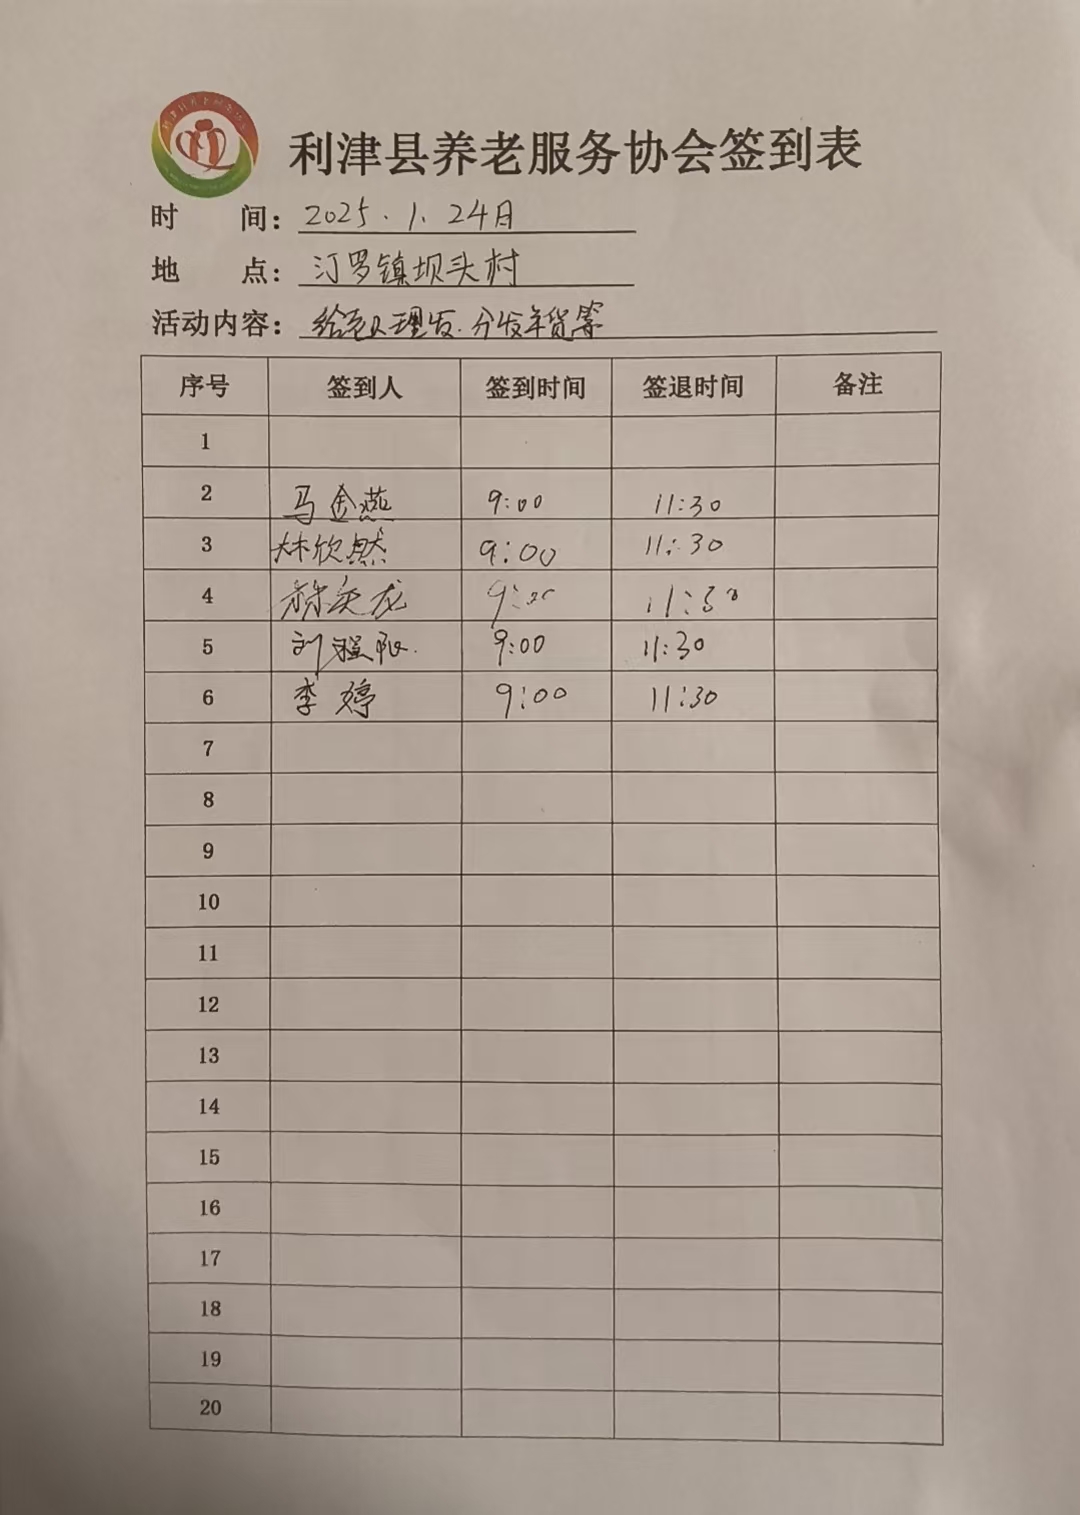 利津县养老服务协会签到表
时 间: 2025.1.24日
地 点: 汀罗镇坝头村
活动内容: 给老人理发.分发年货等
序号 签到人 签到时间 签退时间 备注
1
2 马金燕 9:00 11:30
3 林欣然 9:00 11:30
4 9:00 11:30
5 刘 9:00 11:30
6 李婷 9:00 11:30
7
8
9
10
11
12
13
14
15
16
17
18
19
20